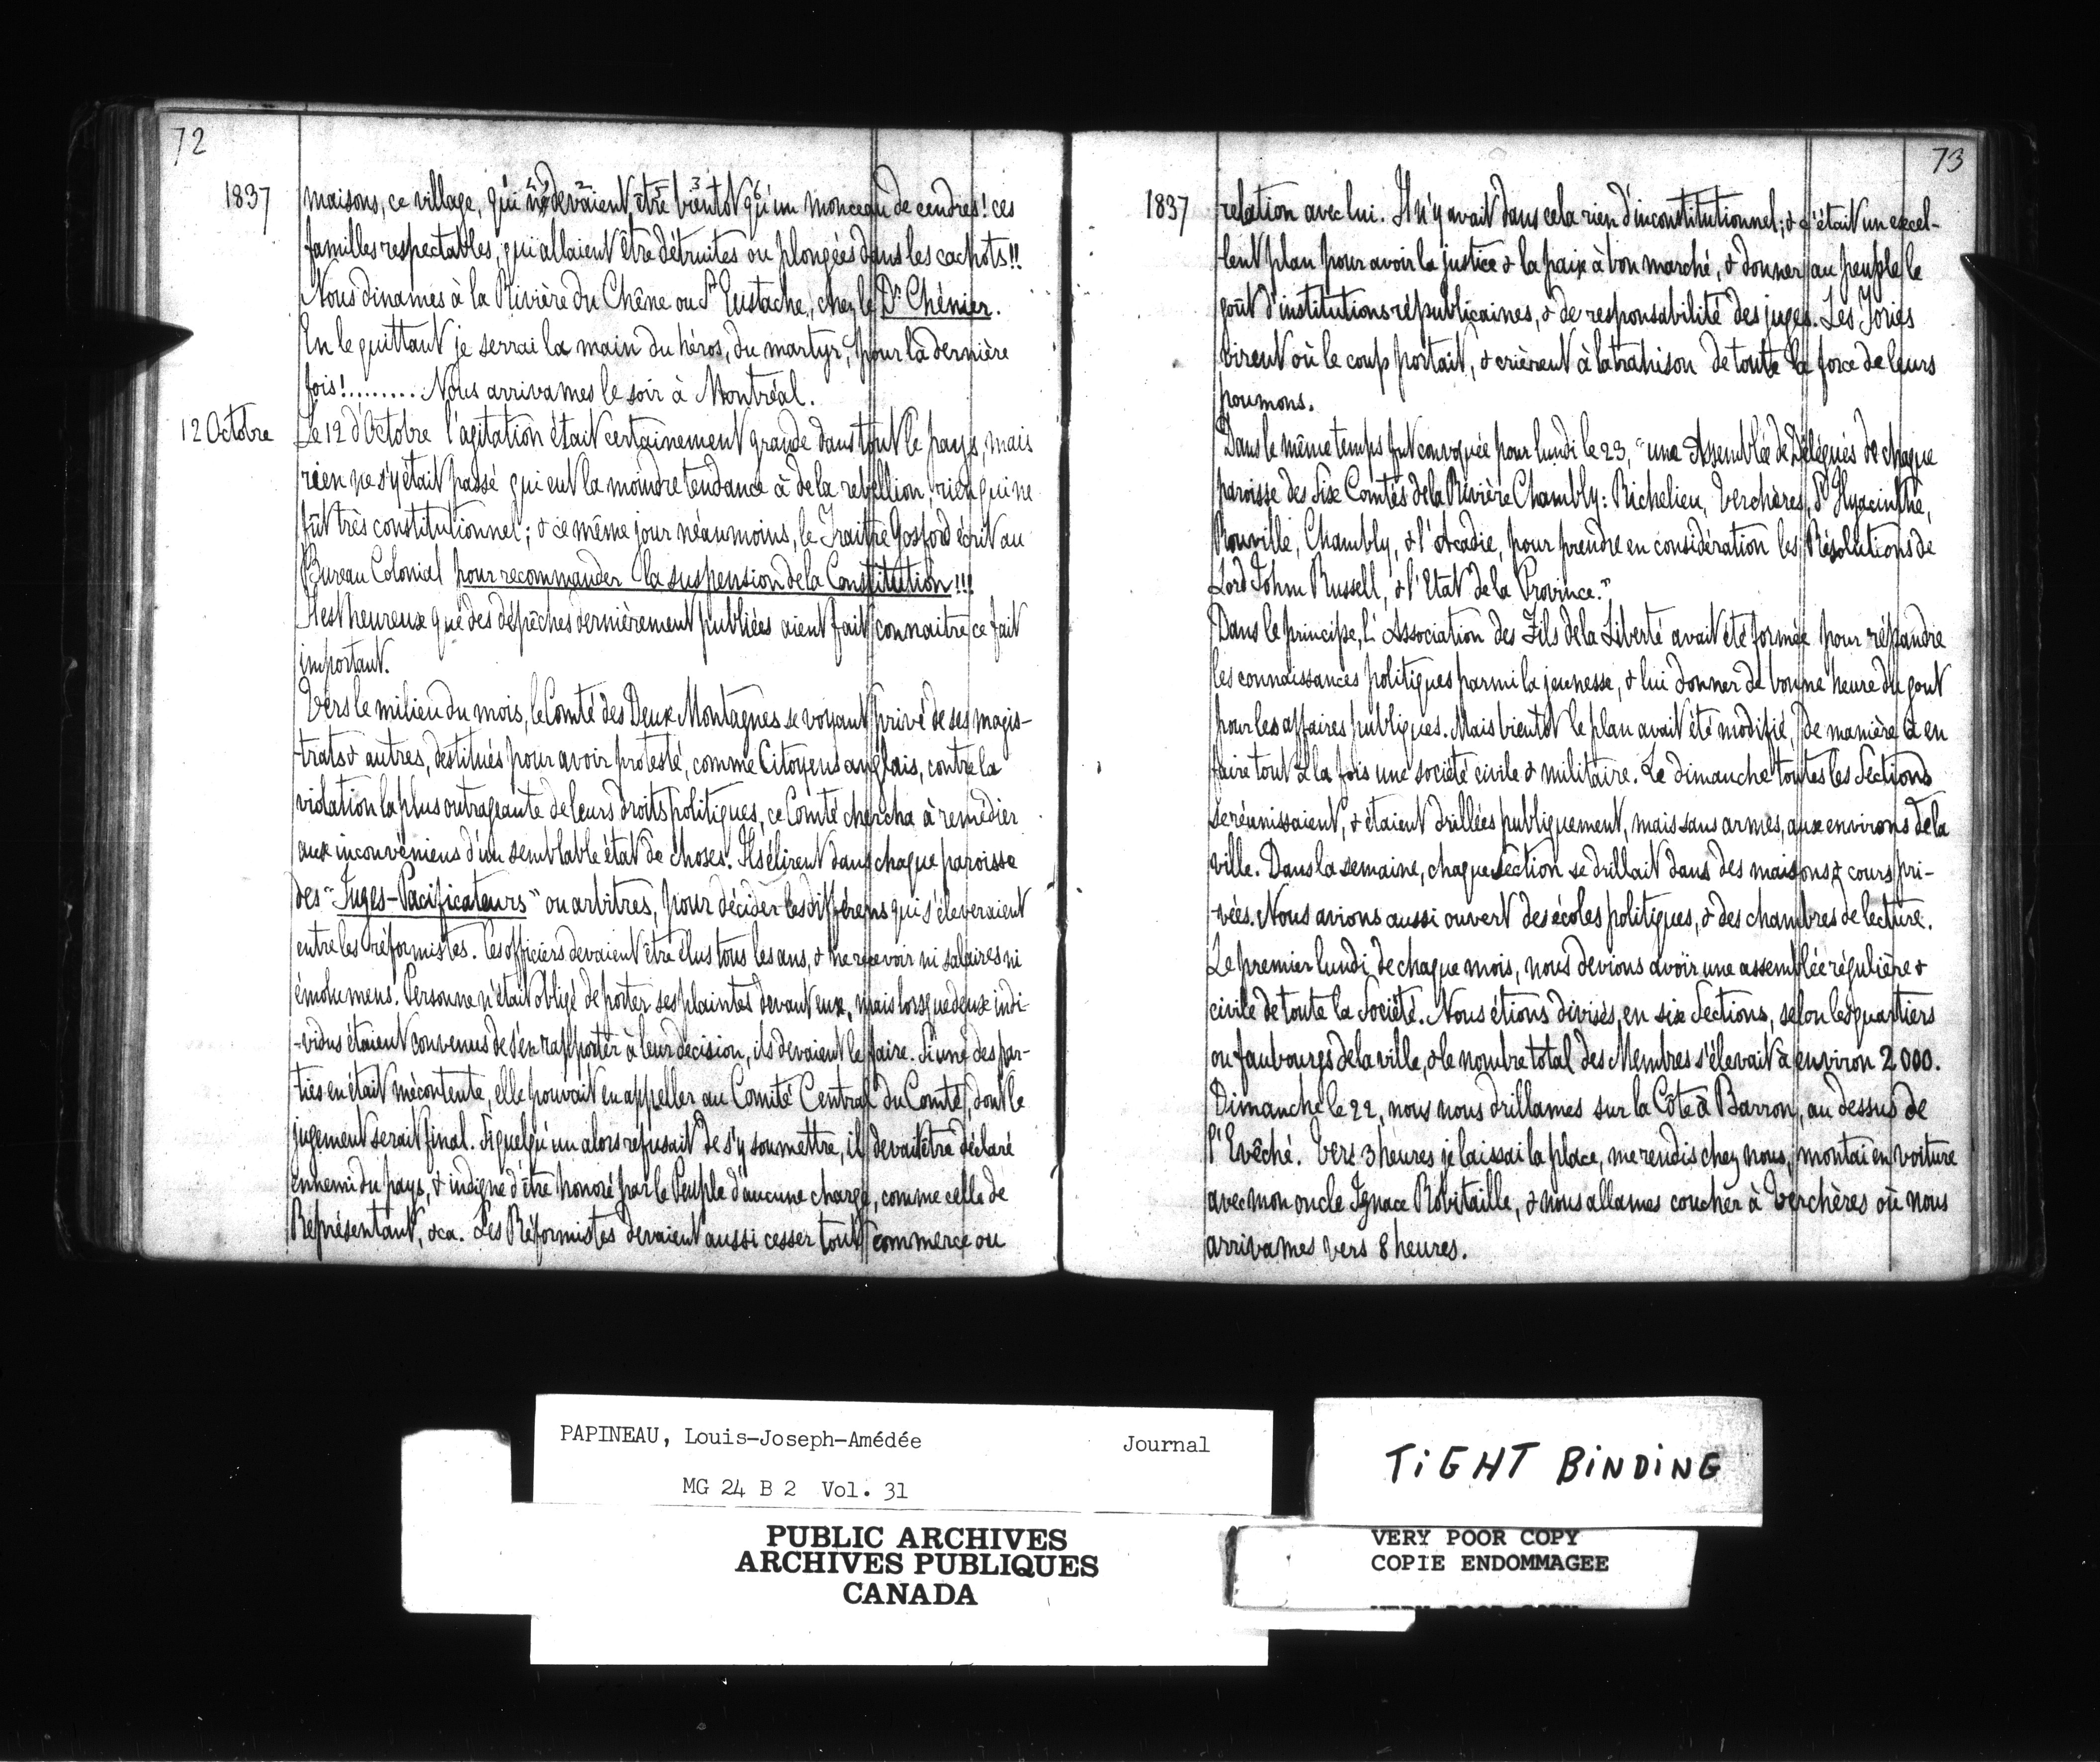 72
1837
maisons, ce village, qui ne devaient être bientot qu'un monceau de cendres! ces
familles respectables, qui allaient être détruites ou plongées dans les cachots!!
Nous dinames à la Rivière du Chêne ou St Eustache, chez le Dr. Chénier.
En le quittant je serrai la main du héros, du martyr, pour la dernière
fois!......... Nous arrivames le soir à Montréal.
12 Octobre
Le 12 d'Octobre l'agitation était certainement grande dans tout le pays, mais
rien ne s'y était passé qui eut la moindre tendance à de la rebellion, rien qui ne
fût très constitutionnel; & ce même jour néanmoins, le Traître Gosford écrit au
Bureau Colonial pour recommander la suspension de la Constitution!!!
Il est heureux que des dépêches dernièrement publiées aient fait connaitre ce fait
important.
Vers le milieu du mois, le Comté des Deux Montagnes se voyant privé de ses magis-
-trats & autres, destitués pour avoir protesté, comme Citoyens anglais, contre la
violation la plus outrageante de leurs droits politiques, ce Comté chercha à remédier
aux inconvéniens d'un semblable état de choses. Ils élirent dans chaque paroisse
des "Juges-Pacificateurs" ou arbitres, pour décider les différens qui s'éleveraient
entre les réformistes. Ces officiers devaient être élus tous les ans, & ne recevoir ni salaires ni
émolumens. Personne n'était obligé de porter ses plaintes devant eux, mais lorsque deux indi-
-vidus étaient convenus de s'en rapporter à leur décision, ils devaient le faire. Si une des par-
ties en était mécontente, elle pouvait en appeller au Comité Central du Comté, dont le
jugement serait final. Si quelqu'un alors refusait de s'y soumettre, il devait être déclaré
ennemi du pays, & indigne d'être honoré par le Peuple d'aucune charge, comme celle de
Représentant, &ca. Les Réformistes devaient aussi cesser tout commerce ou
73
1837
relation avec lui. Il n'y avait dans cela rien d'inconstitutionnel; & c'était un excel-
-lent plan pour avoir la justice & la paix à bon marché, & donner au peuple le
goût d'institutions républicaines, & de responsabilité des juges. Les Tories
virent où le coup portait, & crièrent à la trahison de toute la force de leurs
poumons.
Dans le même temps fut convoquée pour lundi le 23, "une Assemblée de Délégués de chaque
paroisse des Six Comtés de la Rivière Chambly: Richelieu, Verchères, St Hyacinthe,
Rouville, Chambly, & l'Acadie, pour prendre en considération les Résolutions de
Lord John Russell, & l'Etat de la Province."
Dans le principe, l'Association des Fils de la Liberté avait été formée pour répandre
les connaissances politiques parmi la jeunesse, & lui donner de bonne heure du gout
pour les affaires publiques. Mais bientot le plan avait été modifié, de manière à en
faire tout à la fois une société civile & militaire. Le dimanche toutes les Sections
se réunissaient, & étaient drillées publiquement, mais sans armes, aux environs de la
ville. Dans la semaine, chaque section se drillait dans des maisons & cours pri-
-vées. Nous avions aussi ouvert des écoles politiques, & des chambres de lecture.
Le premier lundi de chaque mois, nous devions avoir une assemblée régulière &
civile de toute la Société. Nous étions divisés en six Sections, selon les quartiers
ou faubourgs de la ville, & le nombre total des Membres s'élevait à environ 2000.
Dimanche le 22, nous nous drillames sur la Côte à Barron, au dessus de
l'Evêché. Vers 3 heures je laissai la place, me rendis chez nous, montai en voiture
avec mon oncle Ignace Robitaille, & nous allames coucher à Verchères où nous
arrivames vers 8 heures.
PAPINEAU, Louis-Joseph-Amédée Journal
MG 24 B 2 Vol. 31
PUBLIC ARCHIVES
ARCHIVES PUBLIQUES
CANADA
TIGHT BINDING
VERY POOR COPY
COPIE ENDOMMAGEE